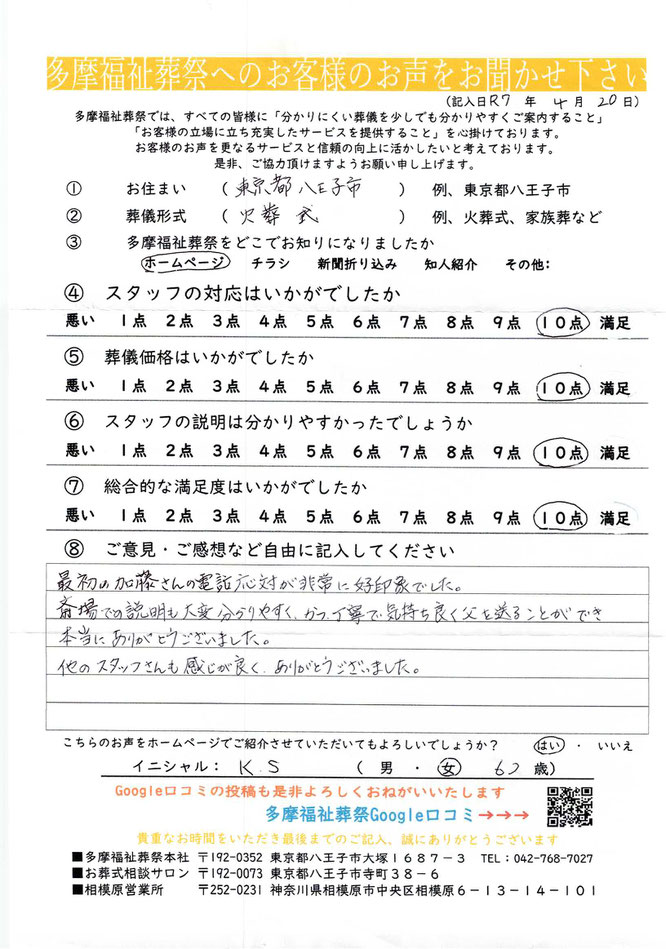 多摩福祉葬祭へのお客様のお声をお聞かせ下さい
(記入日R7 年 4月 20日)
多摩福祉葬祭では、すべての皆様に「分かりにくい葬儀を少しでも分かりやすくご案内すること」
「お客様の立場に立ち充実したサービスを提供すること」を心掛けております。
お客様のお声を更なるサービスと信頼の向上に活かしたいと考えております。
是非、ご協力頂けますようお願い申し上げます。
① お住まい (東京都八王子市) 例、東京都八王子市
② 葬儀形式 (火葬式) 例、火葬式、家族葬など
③ 多摩福祉葬祭をどこでお知りになりましたか
ホームページ チラシ 新聞折り込み 知人紹介 その他:
④ スタッフの対応はいかがでしたか
悪い 1点 2点 3点 4点 5点 6点 7点 8点 9点 10点 満足
⑤ 葬儀価格はいかがでしたか
悪い 1点 2点 3点 4点 5点 6点 7点 8点 9点 10点 満足
⑥ スタッフの説明は分かりやすかったでしょうか
悪い 1点 2点 3点 4点 5点 6点 7点 8点 9点 10点 満足
⑦ 総合的な満足度はいかがでしたか
悪い 1点 2点 3点 4点 5点 6点 7点 8点 9点 10点 満足
⑧ ご意見・ご感想など自由に記入してください
最初の加藤さんの電話応対が非常に好印象でした。
斎場での説明も大変分かりやすく、かつ丁寧で気持ち良く父を送ることができ
本当にありがとうございました。
他のスタッフさんも感じが良く、ありがとうございました。
こちらのお声をホームページでご紹介させていただいてもよろしいでしょうか? はい ・ いいえ
イニシャル: K.S (男・女 62歳)
Google口コミの投稿も是非よろしくおねがいいたします
多摩福祉葬祭Google口コミ→→→
貴重なお時間をいただき最後までのご記入、誠にありがとうございます
■多摩福祉葬祭本社 〒192-0352 東京都八王子市大塚1687-3 TEL:042-768-7027
■お葬式相談サロン 〒192-0073 東京都八王子市寺町38-6
■相模原営業所 〒252-0231 神奈川県相模原市中央区相模原6-13-14-101